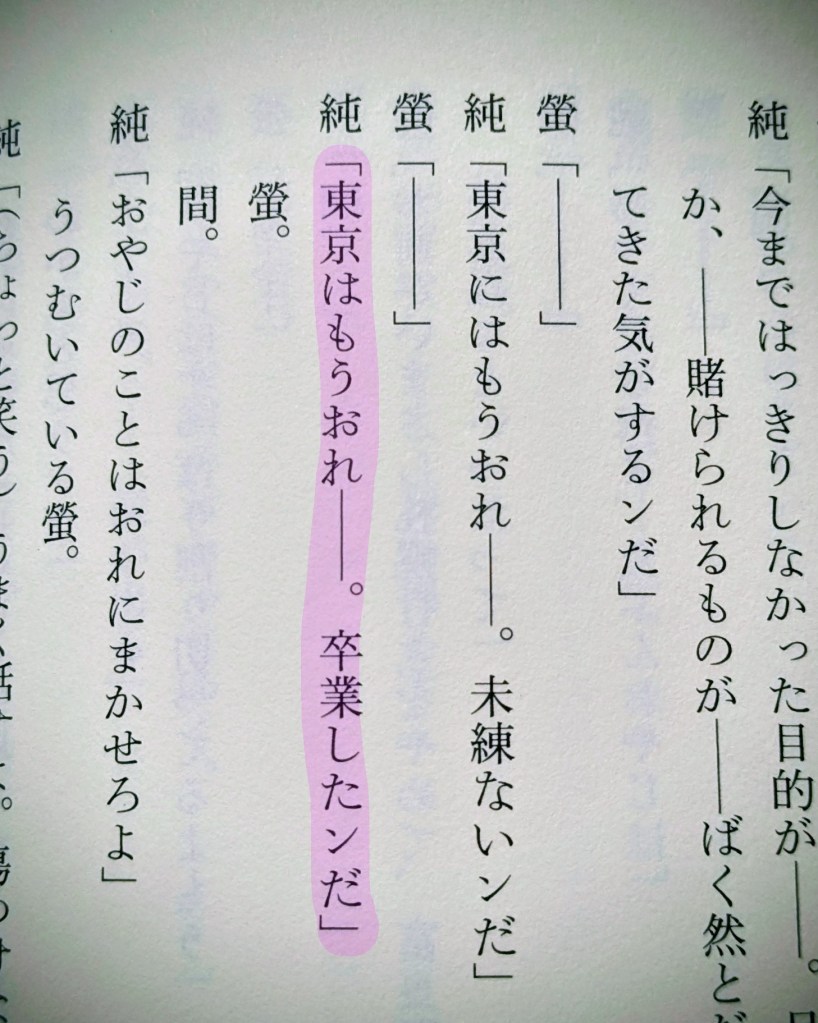 純「今まではっきりしなかった目的が――。
か、――賭けられるものが――ばく然と
てきた気がするンだ」
螢「――――」
純「東京にはもうおれ――。未練ないンだ」
螢「――――」
純「東京はもうおれ――。卒業したンだ」
螢。
間。
純「おやじのことはおれにまかせろよ」
うつむいている螢。
純「(ちょっと笑う)